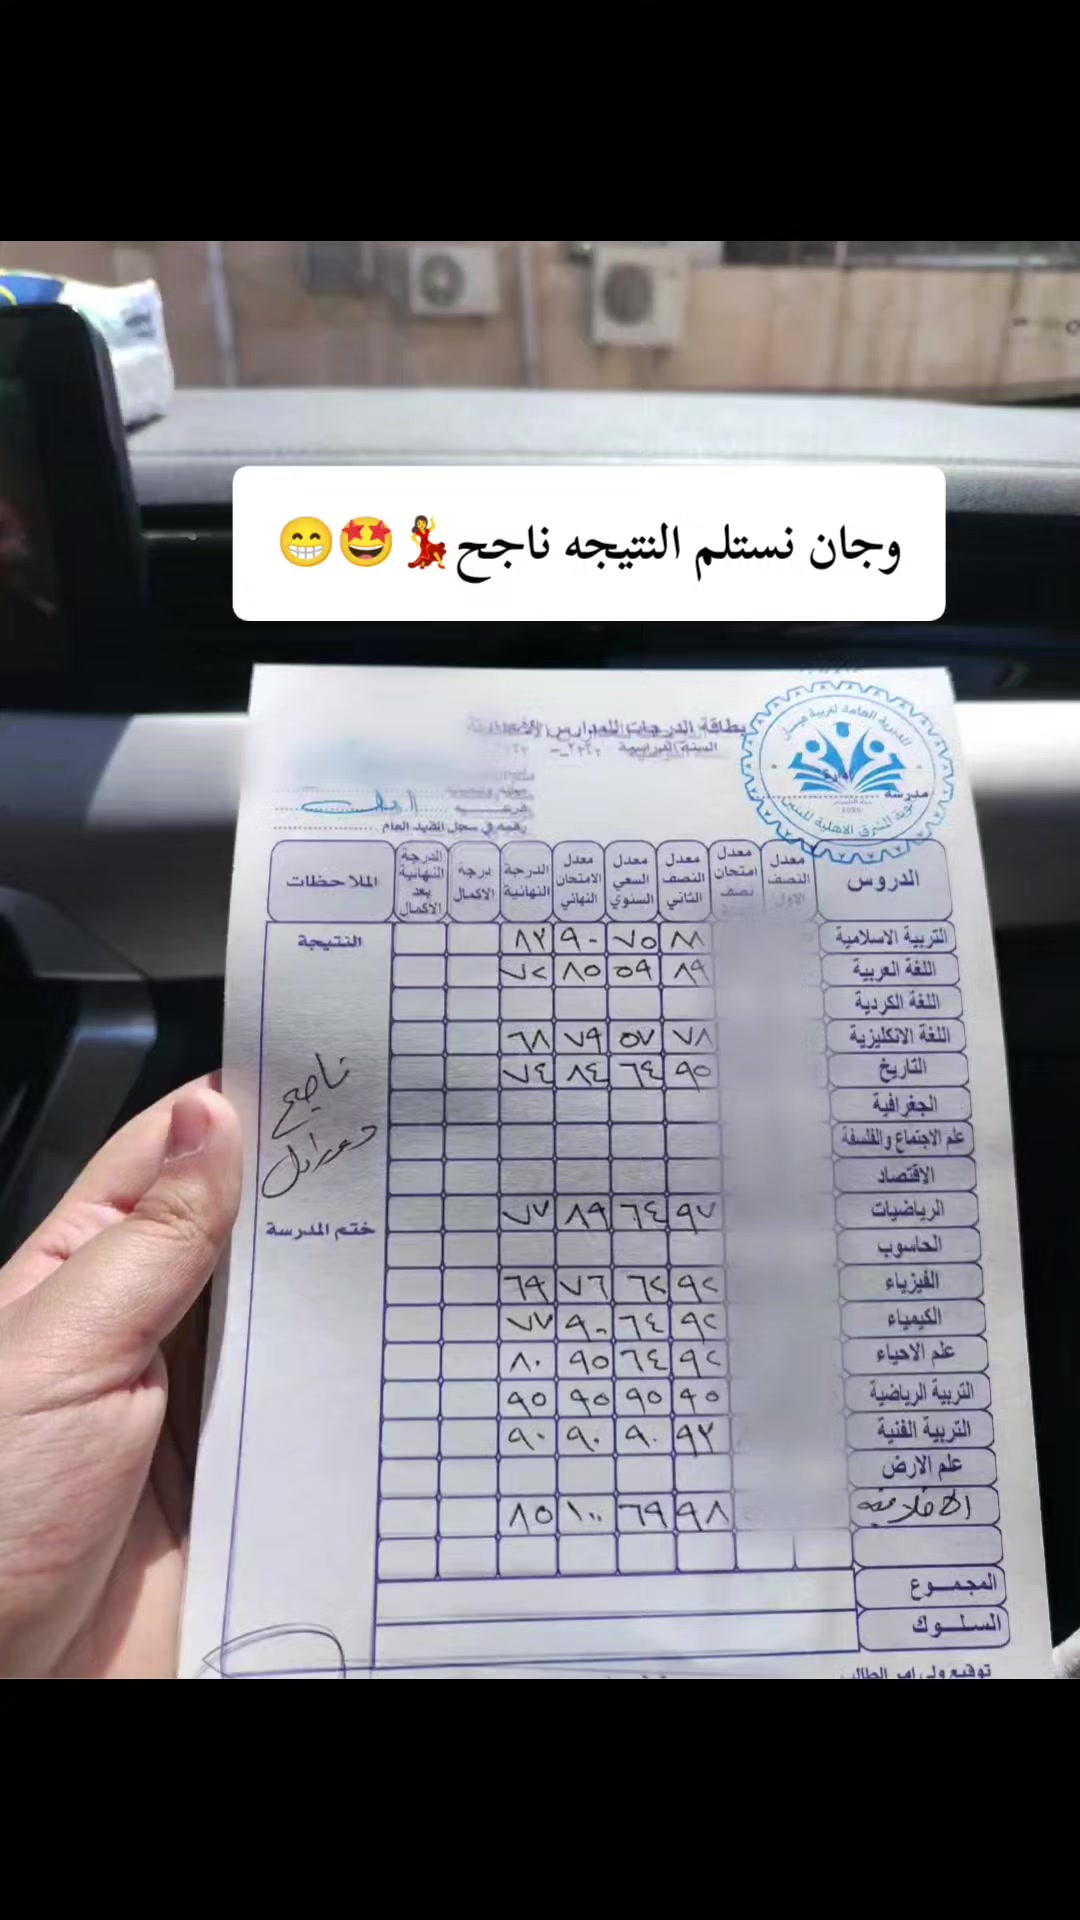 وجان نستلم النتيجه ناجح💃🤩😁
المديرية العامة لتربية ميسان
بطاقة الدرجات للمدارس
السنة الدراسية
مدرسة
الشرق الاهلية للبنين
رقمه في سجل القيد العام
الدروس معدل النصف الاول معدل امتحان نصف معدل النصف الثاني معدل السعي السنوي معدل الامتحان النهائي الدرجة النهائية درجة الاكمال الدرجة النهائية بعد الاكمال الملاحظات
التربية الاسلامية ٨٨ ٧٥ ٩٠ ٨٣ النتيجة
اللغة العربية ٨٩ ٥٩ ٨٥ ٧٢
اللغة الكردية
اللغة الانكليزية ٧٨ ٥٧ ٧٩ ٦٨
التاريخ ٩٥ ٦٤ ٨٤ ٧٤
الجغرافية
ناجح
علم الاجتماع والفلسفة
الاقتصاد
الرياضيات ٩٧ ٦٤ ٨٩ ٧٧
ختم المدرسة
الحاسوب
الفيزياء ٩٢ ٦٢ ٧٦ ٦٩
الكيمياء ٩٢ ٦٤ ٩٠ ٧٧
علم الاحياء ٩٢ ٦٤ ٩٥ ٨٠
التربية الرياضية ٩٥ ٩٥ ٩٥ ٩٥
التربية الفنية ٩٣ ٩٠ ٩٠ ٩٠
علم الارض
٩٨ ٦٩ ١٠٠ ٨٥
المجمـــوع
السلـــوك
توقيع ولي امر الطالب